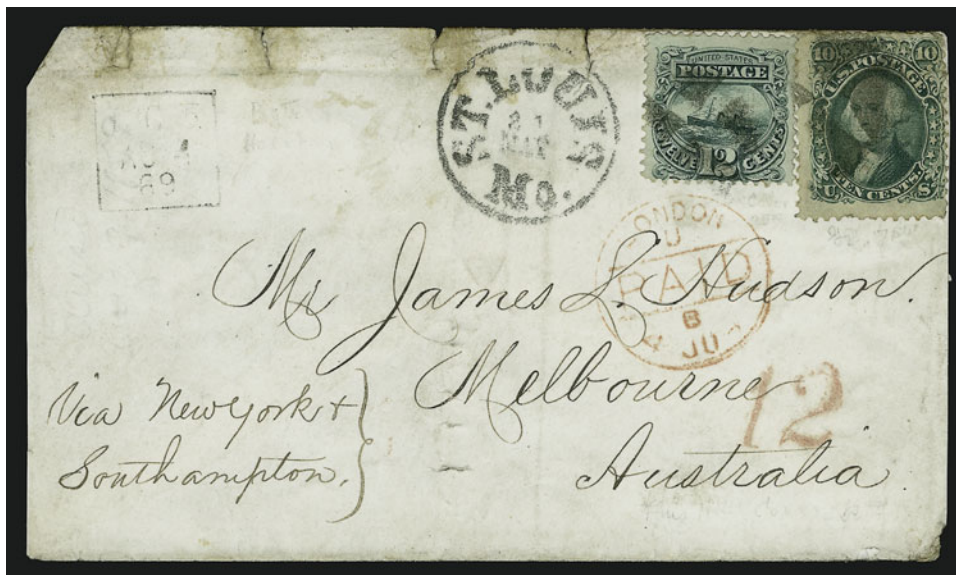 ST. LOUIS
MAY
Mo.
UNITED STATES
POSTAGE
TWELVE 12 CENTS
10 10
U.S. POSTAGE
TEN CENTS.
U S
69
LONDON
PAID
JU
12
Mr James L. Hudson.
Melbourne
Australia
Via New York &
Southampton.